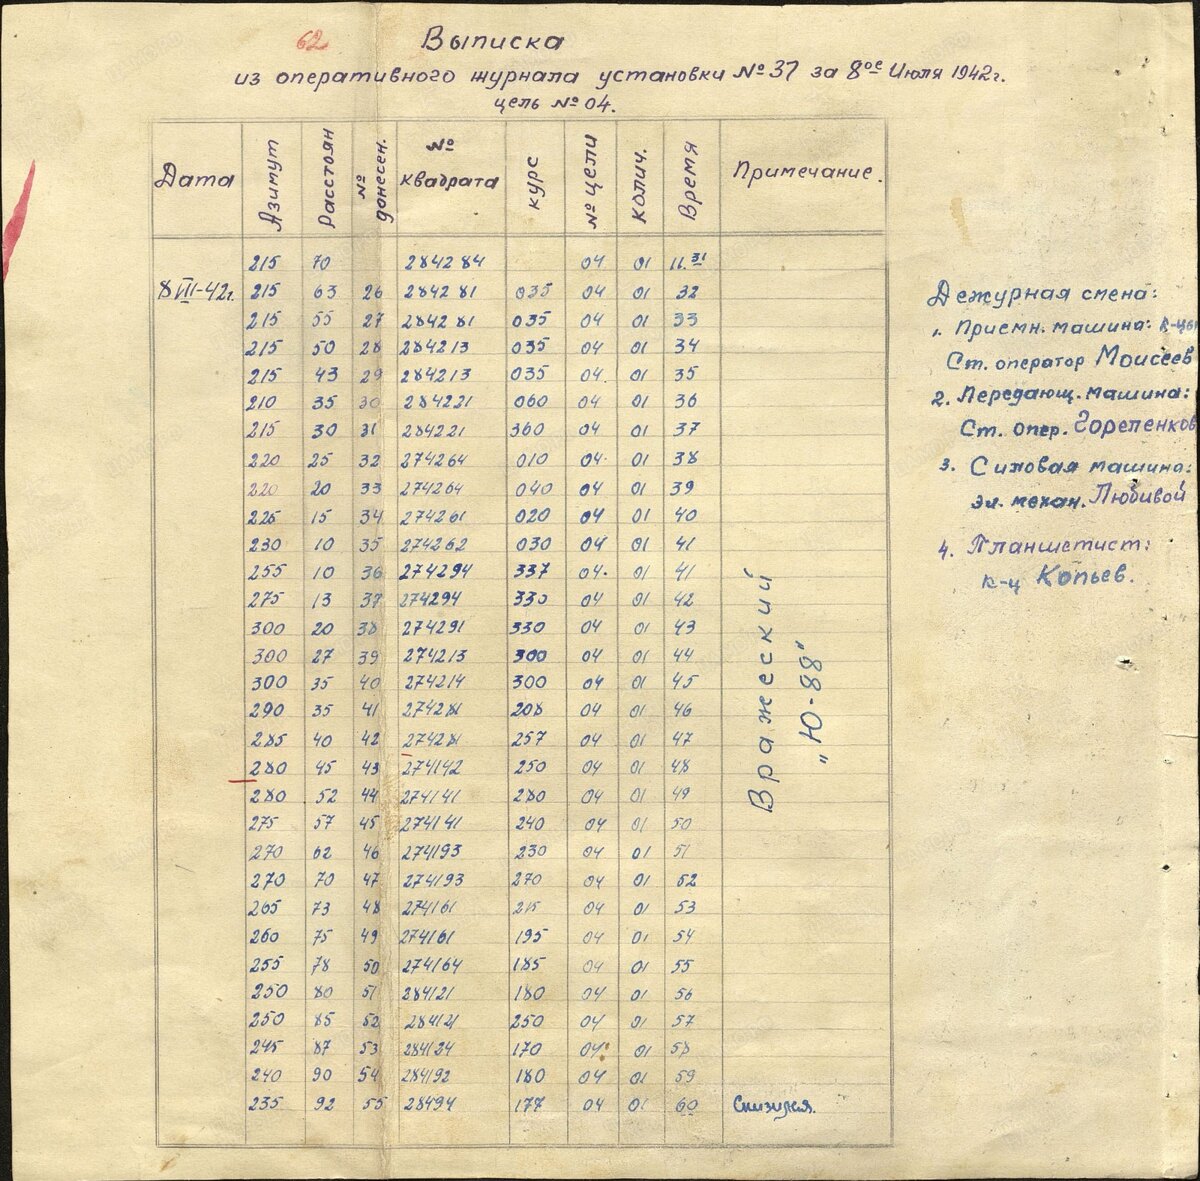 62
Выписка
из оперативного журнала установки № 37 за 8ое Июля 1942г.
цель № 04.
Дата Азимут Расстоян № донесен. № квадрата курс № цели Колич. Время Примечание.
215 70 284284 04 01 11.31
8 VII-42г. 215 63 26 284281 035 04 01 32
215 55 27 284281 035 04 01 33
215 50 28 284213 035 04 01 34
215 43 29 284213 035 04 01 35
210 35 30 284221 060 04 01 36
215 30 31 284221 360 04 01 37
220 25 32 274264 010 04 01 38
220 20 33 274264 040 04 01 39
225 15 34 274261 020 04 01 40
230 10 35 274262 030 04 01 41
255 10 36 274294 337 04 01 41
275 13 37 274294 330 04 01 42
300 20 38 274291 330 04 01 43
300 27 39 274213 300 04 01 44
300 35 40 274214 300 04 01 45
290 35 41 274281 208 04 01 46
285 40 42 274281 257 04 01 47
280 45 43 274142 250 04 01 48
280 52 44 274141 280 04 01 49
275 57 45 274141 240 04 01 50
270 62 46 274193 230 04 01 51
270 70 47 274193 270 04 01 52
265 73 48 274161 215 04 01 53
260 75 49 274161 195 04 01 54
255 78 50 274164 185 04 01 55
250 80 51 284121 180 04 01 56
250 85 52 284121 250 04 01 57
245 87 53 284124 170 04 01 58
240 90 54 284192 180 04 01 59
235 92 55 28494 177 04 01 60 Снизился.
Вражеский
„Ю-88"
Дежурная смена:
1. Приемн. машина:
Ст. оператор Моисеев
2. Передающ. машина:
Ст. опер. Горепенков
3. Силовая машина:
эл. механ. Любивой
4. Планшетист:
к-ц Копьев.